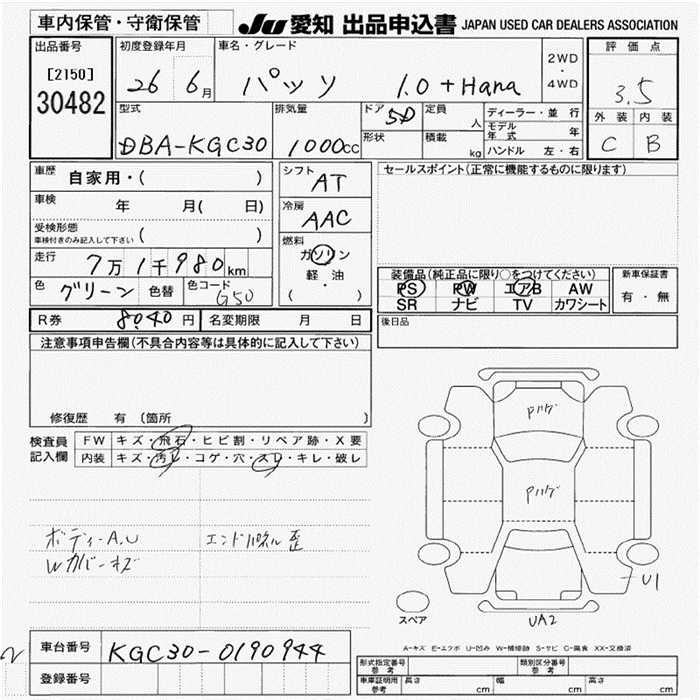 車内保管・守衛保管
JU 愛知 出品申込書 JAPAN USED CAR DEALERS ASSOCIATION
出品番号
[2150]
30482
初度登録年月
26 6月
車名・グレード
パッソ 1.0 +Hana
2WD
・
4WD
評価点
3.5
外装 内装
C B
型式
DBA-KGC30
排気量
1000cc
ドア 5D
形状
定員 人
積載 kg
ディーラー・並行
モデル年式 年
ハンドル 左・右
車歴 自家用・( )
車検 年 月( 日)
受検形態
車検付きのみ記入して下さい ( )
走行 7万1千980km
色 グリーン 色替 色コード G50
シフト AT
冷房 AAC
燃料
ガソリン
軽・油
( ・ )
セールスポイント(正常に機能するものに限ります)
装備品(純正品に限り○をつけてください)
PS PW エアB AW
SR ナビ TV カワシート
新車保証書
有・無
後日品
R券 8040円 名変期限 月 日
注意事項申告欄(不具合内容等は具体的に記入して下さい)
修復歴 有 (箇所 )
検査員
記入欄
FW キズ・飛石・ヒビ割・リペア跡・X要
内装 キズ・汚レ・コゲ・穴・スレ・キレ・破レ
ボディーA,U エンドパネル歪
Wカバーキズ
Pハゲ
Pハゲ
U1
UA2
スペア
A-キズ E-エクボ U-凹み W-補修跡 S-サビ C-腐食 XX-交換済
車台番号 KGC30-0190944
登録番号
型式指定番号
参考
類別区分番号
参考
車庫証明用
参考
長さ cm 幅 cm 高さ cm